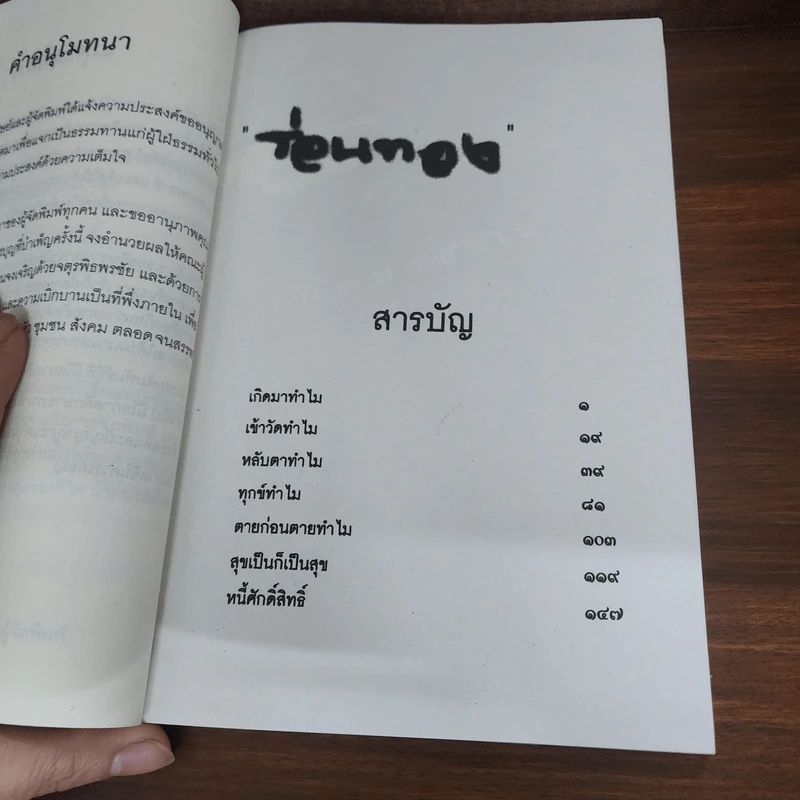 คำอนุโมทนา
ษย์และผู้จัดพิมพ์ได้แจ้งความประสงค์ขออนุญา
ตมาเพื่อแจกเป็นธรรมทานแก่ผู้ใฝ่ธรรมทั่วไ
ามประสงค์ด้วยความเต็มใจ
าของผู้จัดพิมพ์ทุกคน และขออานุภาพคุณ
บุญที่บำเพ็ญครั้งนี้ จงอำนวยผลให้คณะผู้
นจงเจริญด้วยจตุรพิธพรชัย และด้วยกา
และความเบิกบานเป็นที่พึ่งภายใน เพื่
ัว ชุมชน สังคม ตลอดจนสรรพ
"ร่อนทอง"
สารบัญ
เกิดมาทำไม ๑
เข้าวัดทำไม ๑๙
หลับตาทำไม ๓๙
ทุกข์ทำไม ๘๑
ตายก่อนตายทำไม ๑๐๓
สุขเป็นก็เป็นสุข ๑๑๙
หนี้ศักดิ์สิทธิ์ ๑๔๗